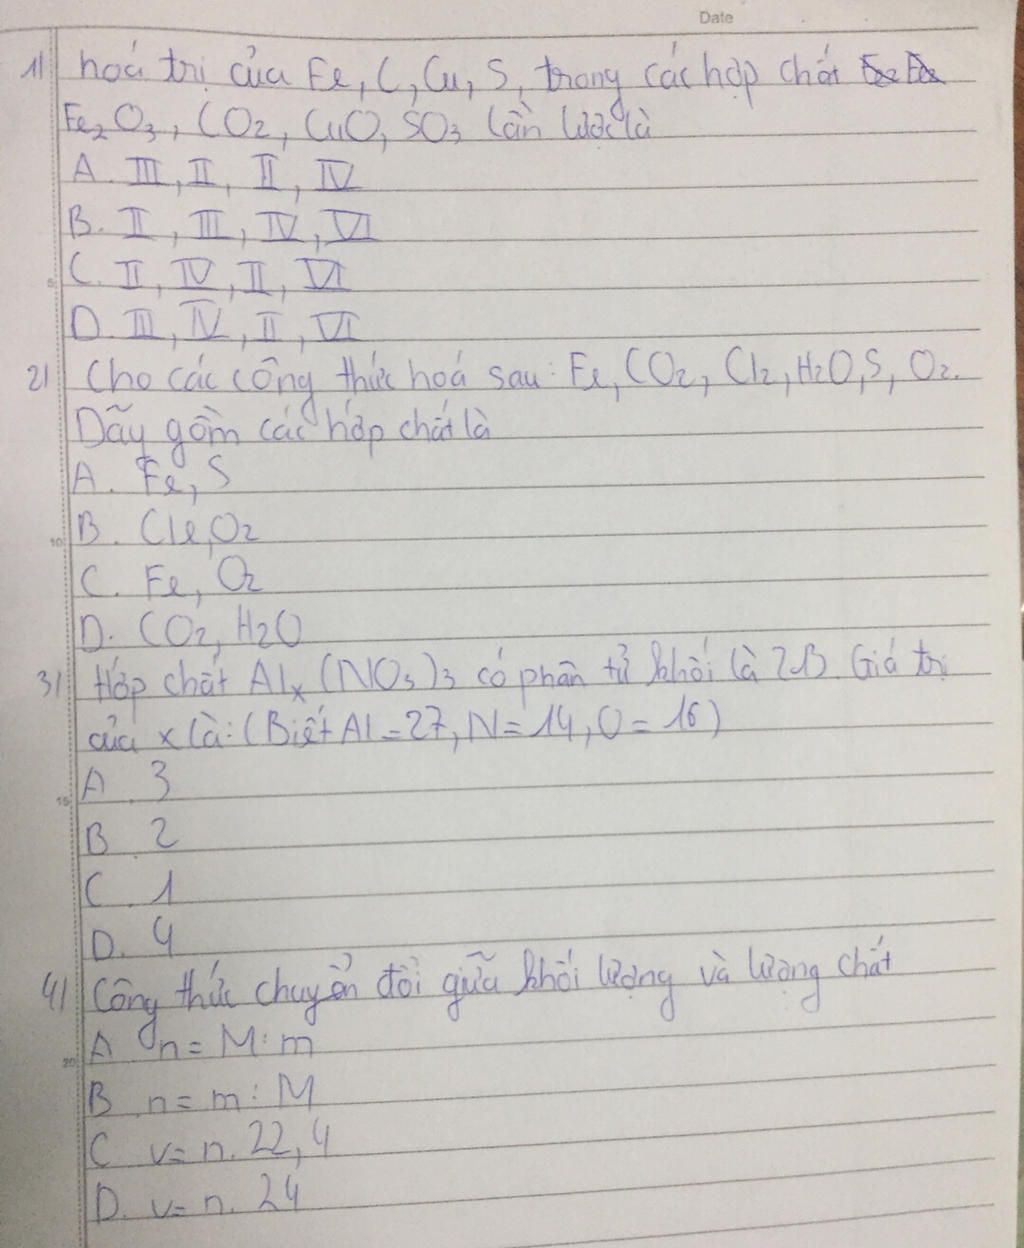 Date
1) hoá trị của Fe, C, Cu, S, trong các hợp chất
Fe2O3, CO2, CuO, SO3 lần lược là
A. III, II, II, IV
B. II, III, IV, VI
5
C. II, IV, II, VI
D. III, IV, II, VI
2) Cho các công thức hoá sau: Fe, CO2, Cl2, H2O, S, O2.
Dãy gồm các hợp chất là
A. Fe, S
10
B. Cl2, O2
C. Fe, O2
D. CO2, H2O
3) Hợp chất Alx(NO3)3 có phân tử khối là 213. Giá trị
của x là: (Biết Al=27, N=14, O=16)
15
A. 3
B. 2
C. 1
D. 4
4) Công thức chuyển đổi giữa khối lượng và lượng chất
20
A n = M : m
B. n = m : M
C v = n. 22,4
D. v = n. 24